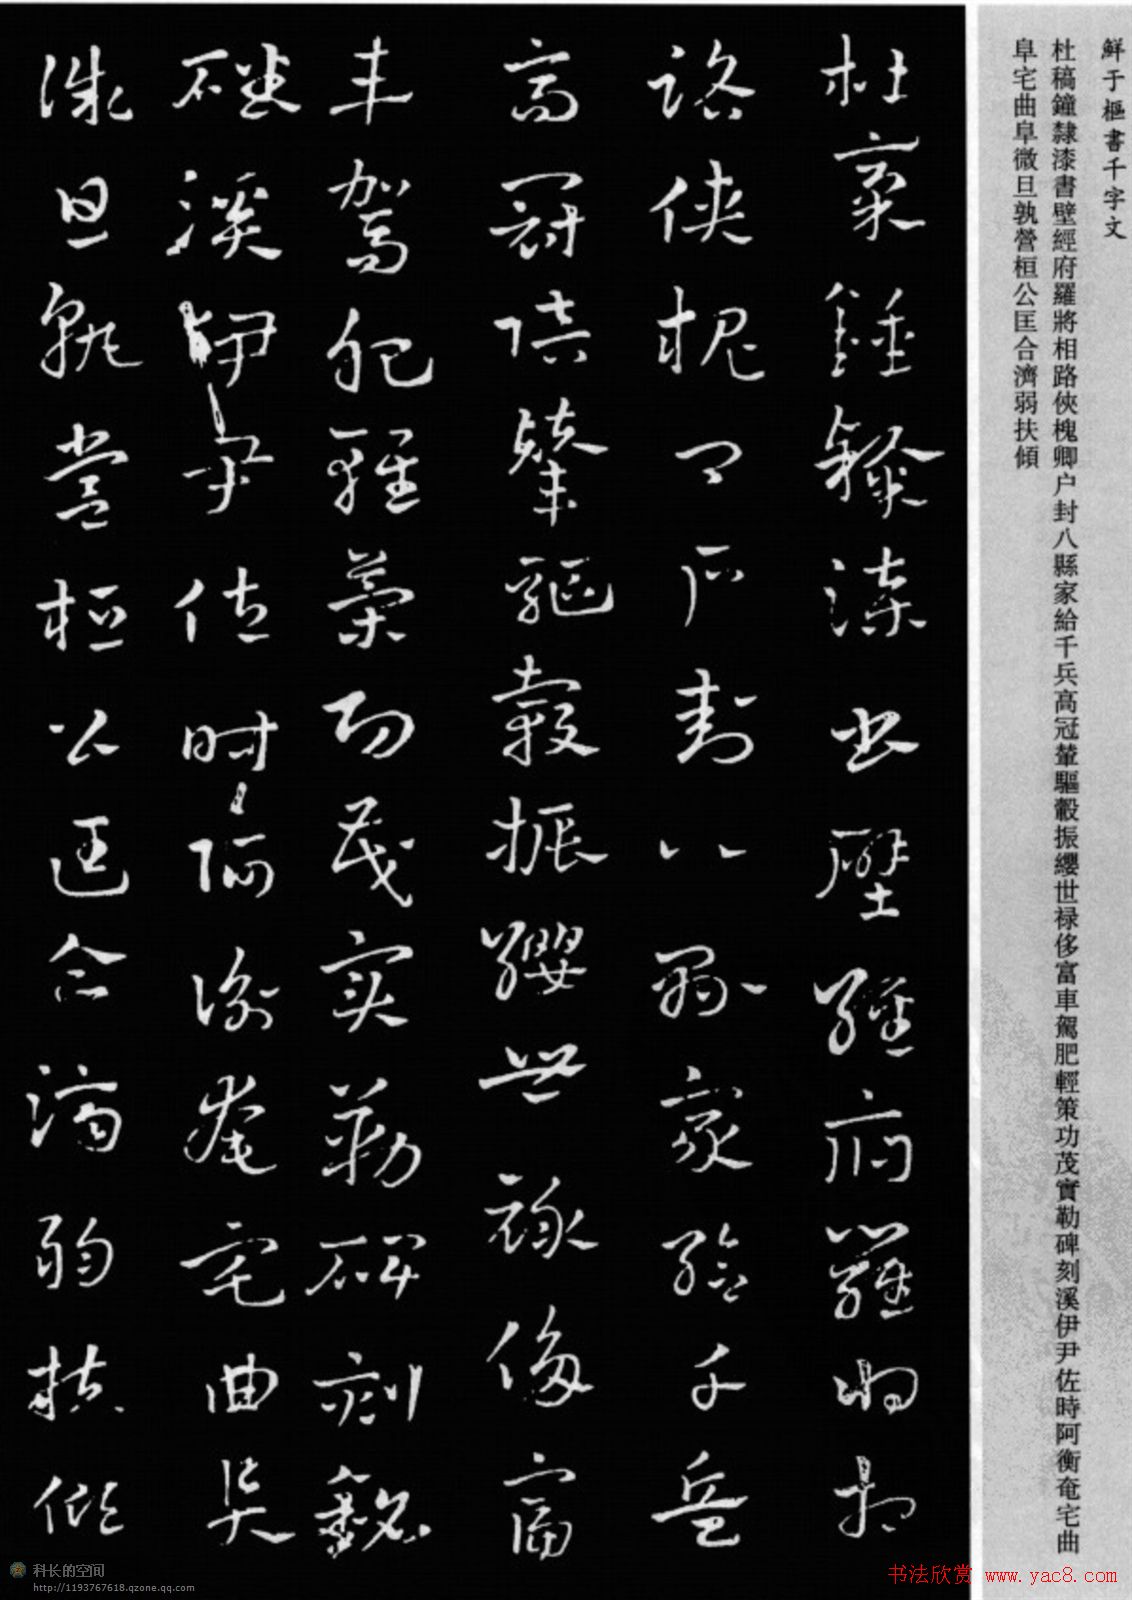 鮮于樞書千字文
杜稿鐘隸漆書壁經府羅將相路俠槐卿户封八縣家給千兵高冠輦驅轂振纓世禄侈富車駕肥輕策功茂實勒碑刻溪伊尹佐時阿衡奄宅曲
阜宅曲阜微旦孰營桓公匡合濟弱扶傾
杜稾鍾隸漆書壁經府羅將相
路俠槐卿户封八縣家給千兵
高冠陪輦驅轂振纓世禄侈富
車駕肥輕策功茂實勒碑刻銘
磻溪伊尹佐時阿衡奄宅曲阜
微旦孰營桓公匡合濟弱扶傾
科长的空间
http://1193767618.qzone.qq.com
书法欣赏 www.yac8.com